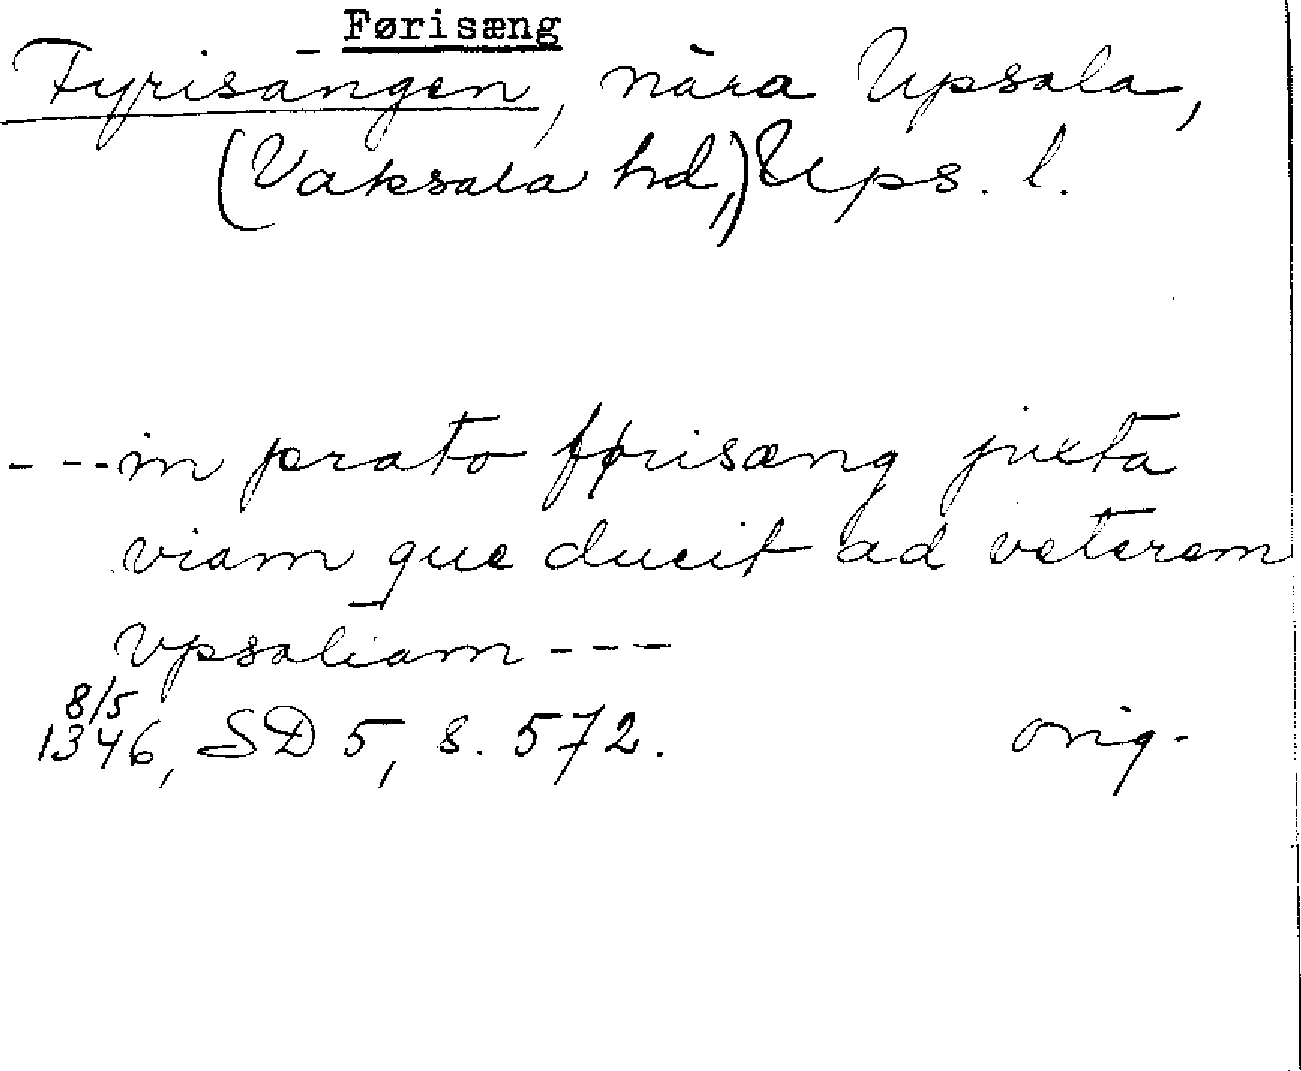 Førisæng
Fyrisängen, nära Upsala,
(Vaksala hd,) Ups. l.
---in prato førisæng juxta
viam que ducit ad veterem
vpsaliam---
8/5
1346, SD 5, s. 572. orig.